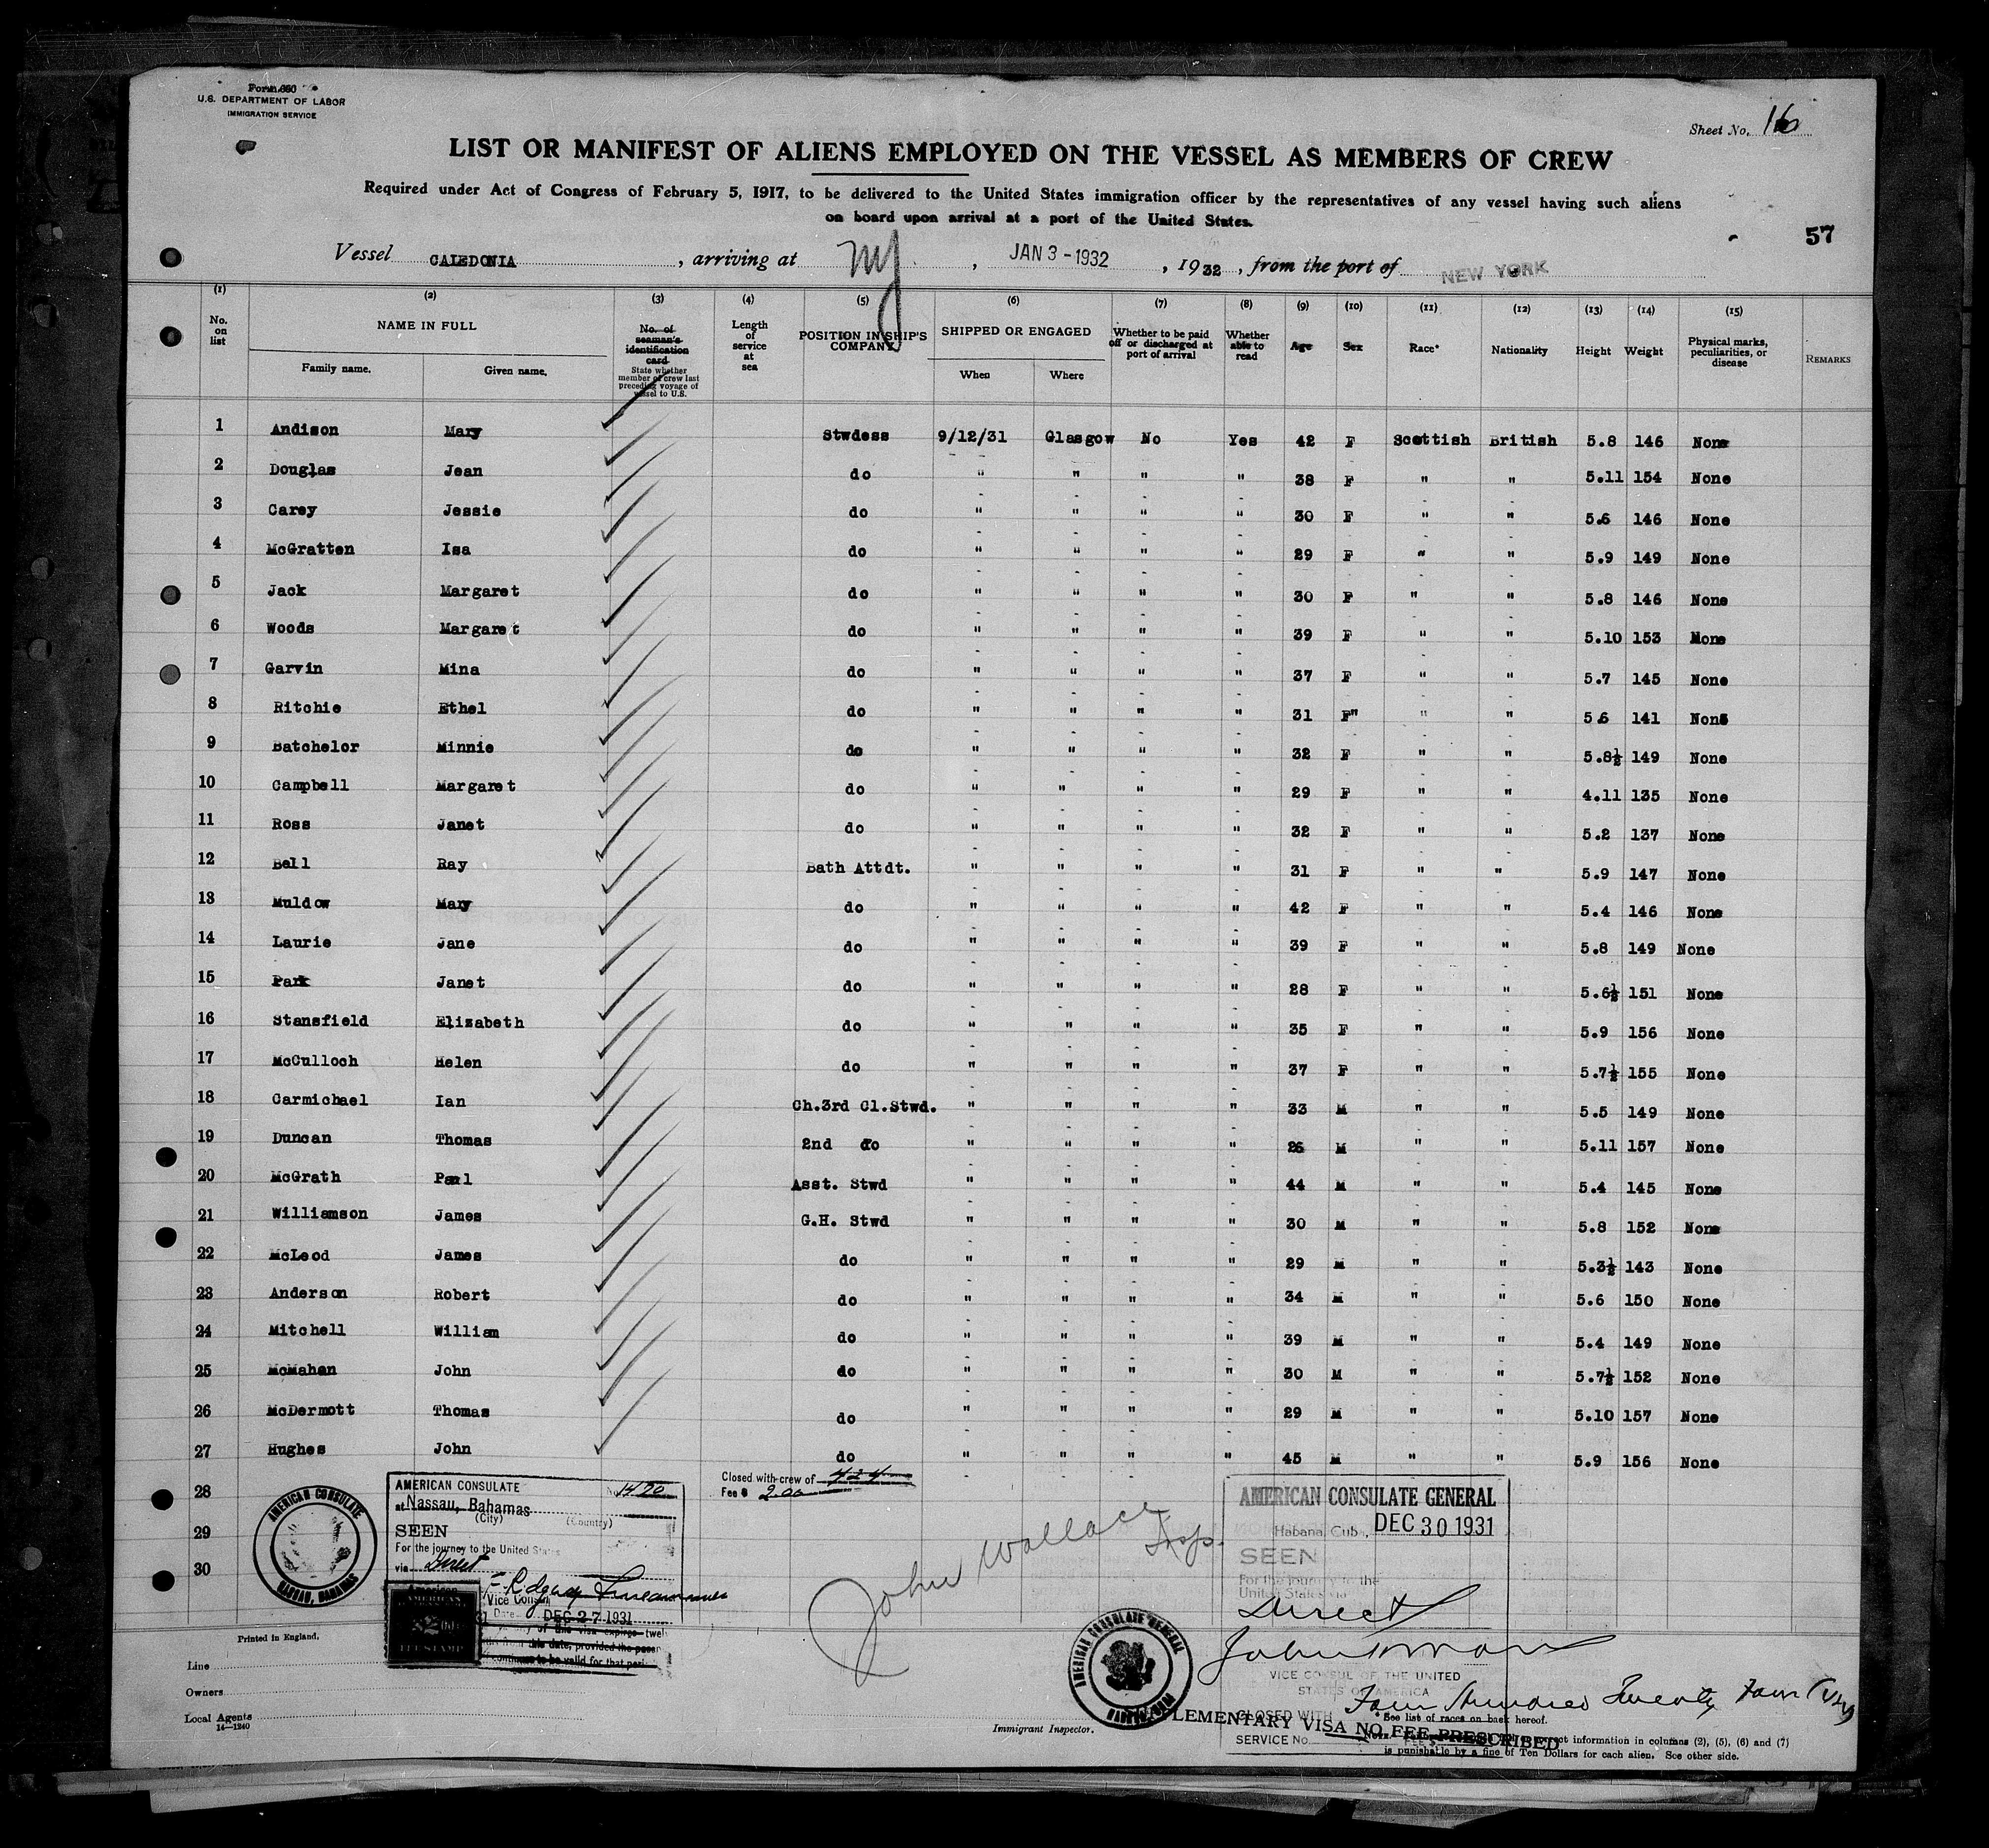 Form 680
U.S. DEPARTMENT OF LABOR
IMMIGRATION SERVICE
Sheet No. 16
LIST OR MANIFEST OF ALIENS EMPLOYED ON THE VESSEL AS MEMBERS OF CREW
Required under Act of Congress of February 5, 1917, to be delivered to the United States immigration officer by the representatives of any vessel having such aliens
on board upon arrival at a port of the United States.
57
Vessel CALEDONIA, arriving at NY, JAN 3 - 1932, 1932, from the port of NEW YORK
(1) (2) (3) (4) (5) (6) (7) (8) (9) (10) (11) (12) (13) (14) (15)
No. on list NAME IN FULL Family name. Given name. No. of seaman's identification card State whether member of crew last preceding voyage of vessel to U.S. Length of service at sea POSITION IN SHIP'S COMPANY SHIPPED OR ENGAGED When Where Whether to be paid off or discharged at port of arrival Whether able to read Age Sex Race* Nationality Height Weight Physical marks, peculiarities, or disease REMARKS
1 Andison Mary Stwdess 9/12/31 Glasgow No Yes 42 F Scottish British 5.8 146 None
2 Douglas Jean do " " " " 38 F " " 5.11 154 None
3 Carey Jessie do " " " " 30 F " " 5.6 146 None
4 McGratten Isa do " " " " 29 F " " 5.9 149 None
5 Jack Margaret do " " " " 30 F " " 5.8 146 None
6 Woods Margaret do " " " " 39 F " " 5.10 153 None
7 Garvin Mina do " " " " 37 F " " 5.7 145 None
8 Ritchie Ethel do " " " " 31 F" " " 5.6 141 None
9 Batchelor Minnie do " " " " 32 F " " 5.8½ 149 None
10 Campbell Margaret do " " " " 29 F " " 4.11 135 None
11 Ross Janet do " " " " 32 F " " 5.2 137 None
12 Bell Ray Bath Attdt. " " " " 31 F " " 5.9 147 None
13 Muldow Mary do " " " " 42 F " " 5.4 146 None
14 Laurie Jane do " " " " 39 F " " 5.8 149 None
15 Park Janet do " " " " 28 F " " 5.6½ 151 None
16 Stansfield Elizabeth do " " " " 35 F " " 5.9 156 None
17 McCulloch Helen do " " " " 37 F " " 5.7½ 155 None
18 Carmichael Ian Ch.3rd Cl.Stwd. " " " " 33 M " " 5.5 149 None
19 Duncan Thomas 2nd do " " " " 26 M " " 5.11 157 None
20 McGrath Paul Asst. Stwd " " " " 44 M " " 5.4 145 None
21 Williamson James G.H. Stwd " " " " 30 M " " 5.8 152 None
22 McLeod James do " " " " 29 M " " 5.3½ 143 None
23 Anderson Robert do " " " " 34 M " " 5.6 150 None
24 Mitchell William do " " " " 39 M " " 5.4 149 None
25 McMahan John do " " " " 30 M " " 5.7½ 152 None
26 McDermott Thomas do " " " " 29 M " " 5.10 157 None
27 Hughes John do " " " " 45 M " " 5.9 156 None
28
29
30
AMERICAN CONSULATE
NASSAU, BAHAMAS
AMERICAN CONSULATE No. 1420
at Nassau, Bahamas
(City) (Country)
SEEN
For the journey to the United States
via Direct
Vice Consul
Date DEC 27 1931
Closed with crew of 424
Fee $ 2.00
John Wallace Insp.
AMERICAN CONSULATE GENERAL
Habana, Cuba, DEC 30 1931
SEEN
For the journey to the
United States via
Direct
VICE CONSUL OF THE UNITED
STATES OF AMERICA
Four Hundred Twenty Four
CLOSED WITH
SERVICE No.
AMERICAN CONSULATE GENERAL
LEMENTARY VISA NO FEE PRESCRIBED
Printed in England.
Line
Owners
Local Agents
14—1240
Immigrant Inspector.
* See list of races on back hereof.
information in columns (2), (5), (6) and (7)
is punishable by a fine of Ten Dollars for each alien. See other side.